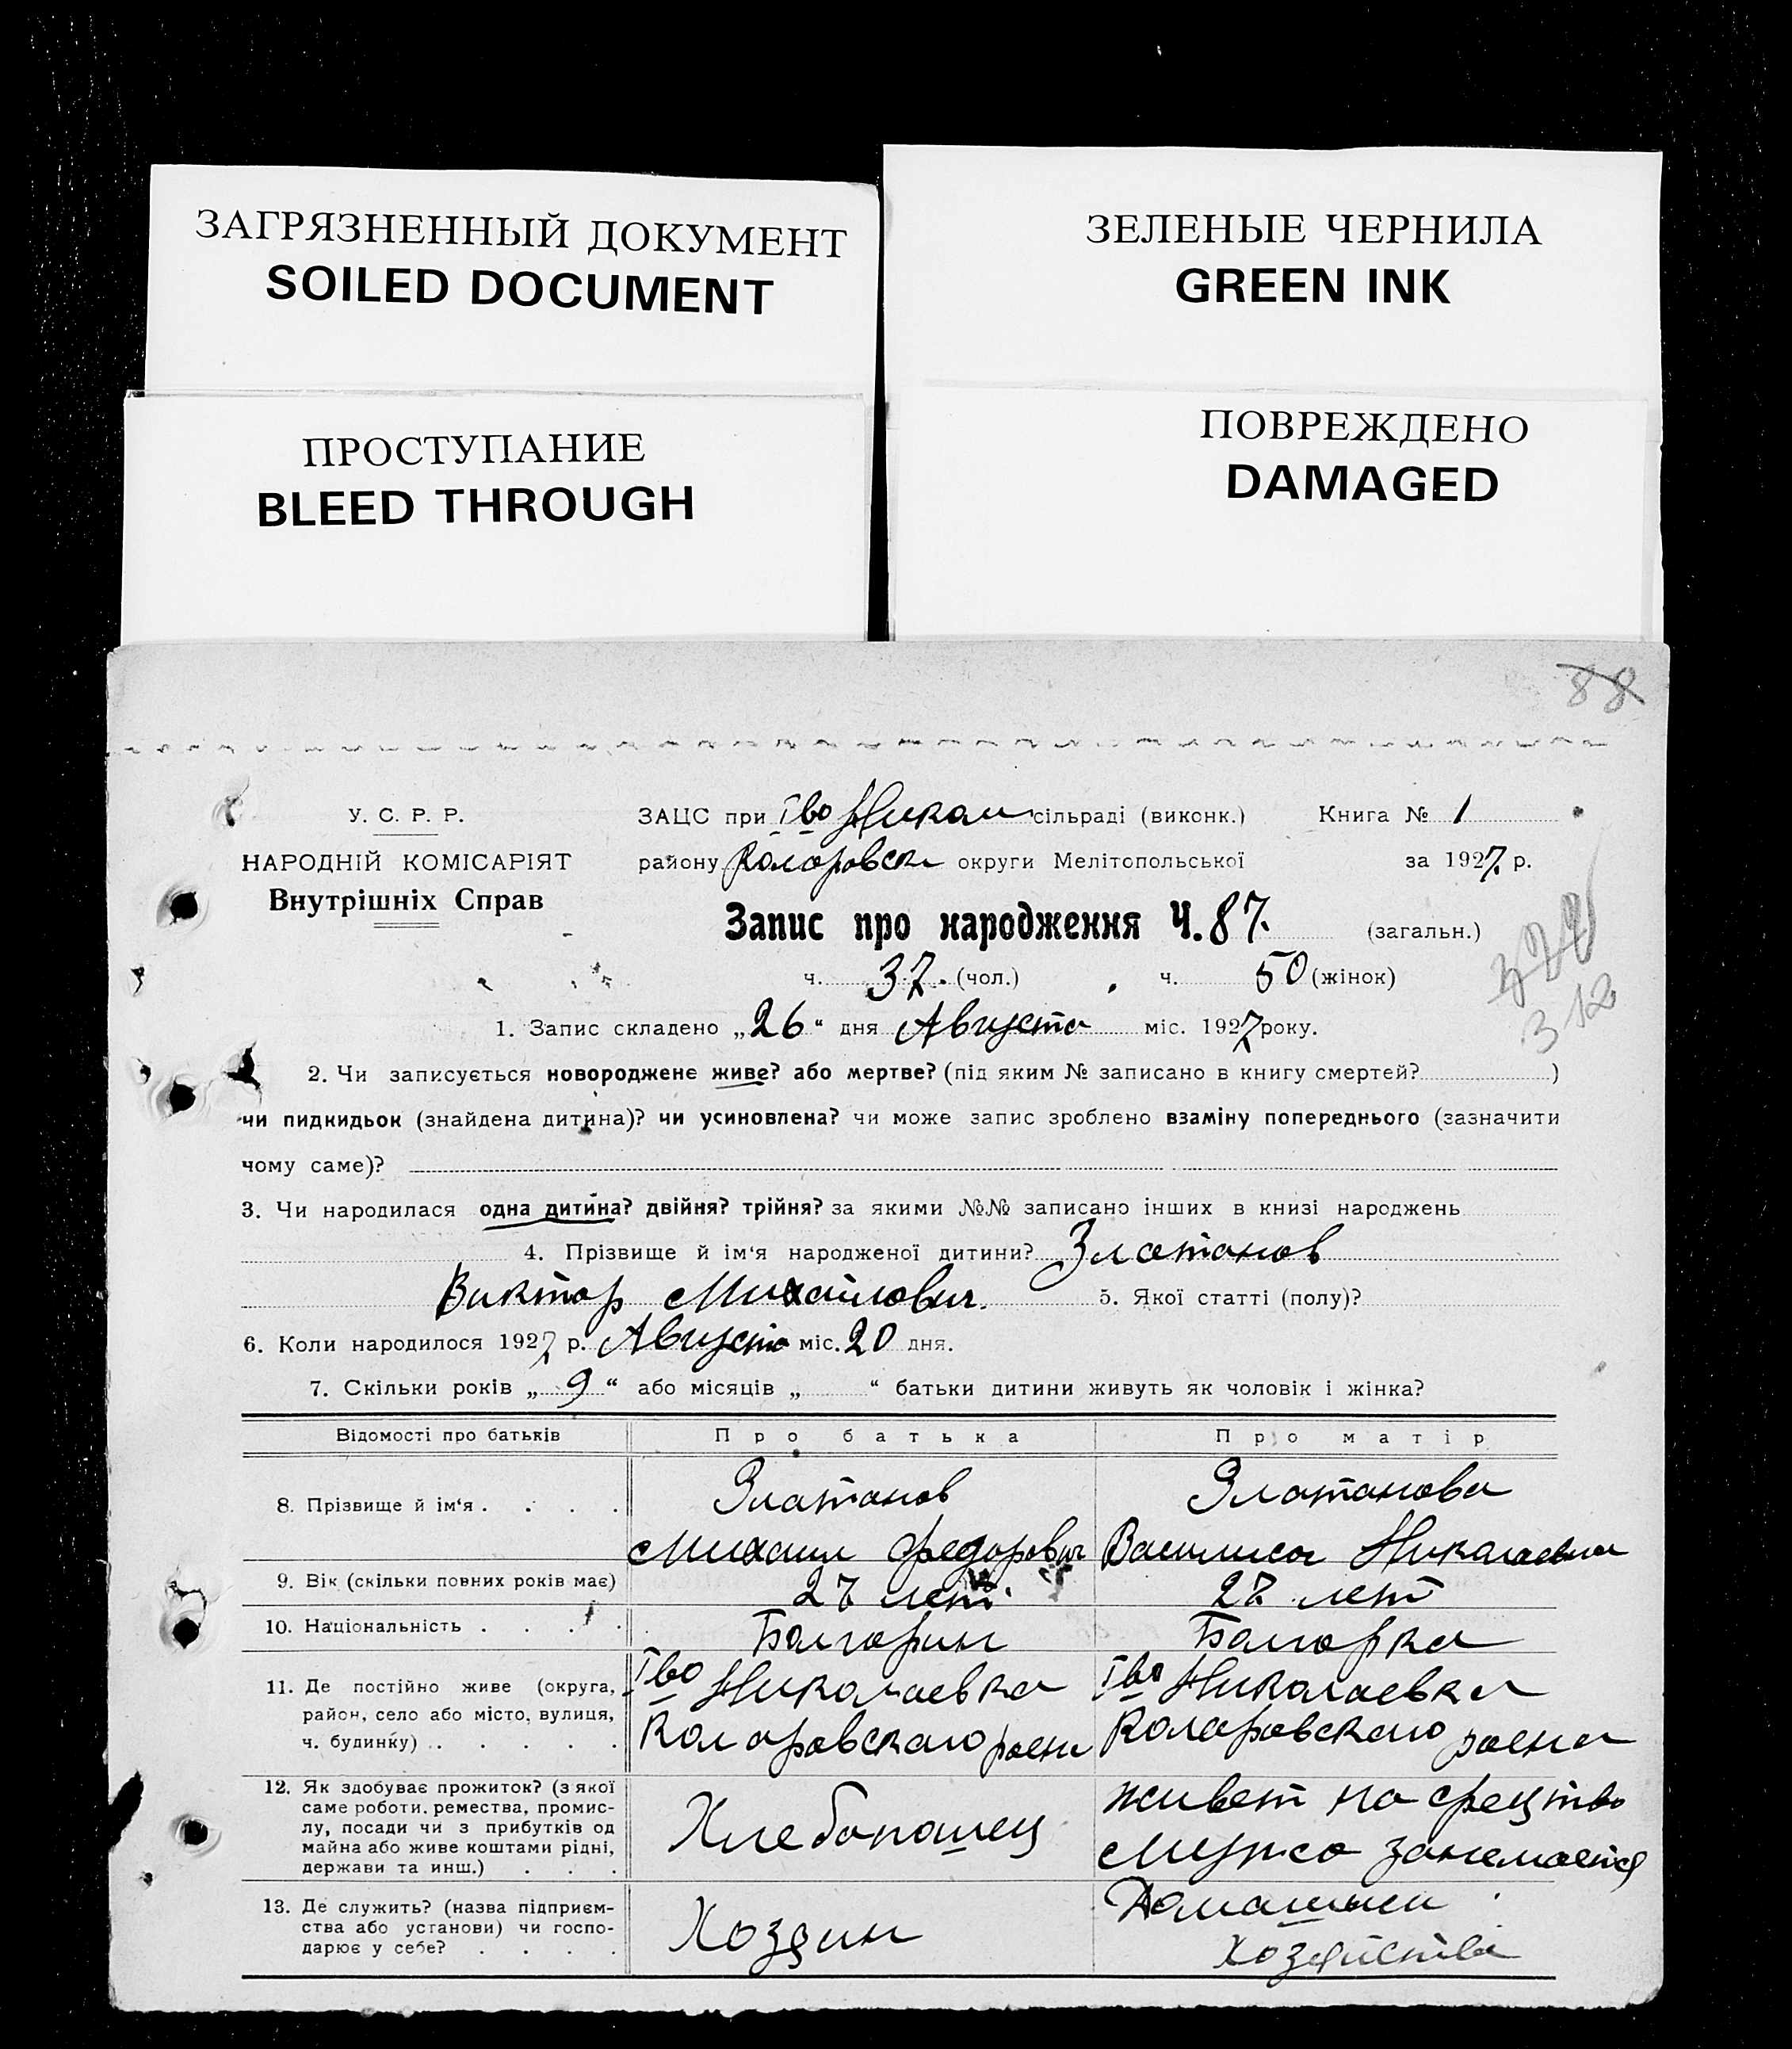 ЗАГРЯЗНЕННЫЙ ДОКУМЕНТ
SOILED DOCUMENT
ЗЕЛЕНЫЕ ЧЕРНИЛА
GREEN INK
ПРОСТУПАНИЕ
BLEED THROUGH
ПОВРЕЖДЕНО
DAMAGED
88
У. С. Р. Р.
НАРОДНІЙ КОМІСАРІЯТ
Внутрішніх Справ
ЗАЦС при Iво Никол сільраді (виконк.) Книга № 1
району Коларовск округи Мелітопольської за 1927. р.
Запис про народження Ч. 87. (загальн.)
ч. 37. (чол.) ч. 50 (жінок)
312
1. Запис складено „26“ дня Августа міс. 1927 року.
2. Чи записується новороджене живе? або мертве? (під яким № записано в книгу смертей? )
чи пидкидьок (знайдена дитина)? чи усиновлена? чи може запис зроблено взаміну попереднього (зазначити
чому саме)?
3. Чи народилася одна дитина? двійня? трійня? за якими №№ записано інших в книзі народжень
4. Прізвище й ім‘я народженої дитини? Златанов
Виктор Михайлович. 5. Якої статті (полу)?
6. Коли народилося 1927 р. Августа міс. 20 дня.
7. Скільки років „ 9 “ або місяців „ “ батьки дитини живуть як чоловік і жінка?
Відомості про батьків Про батька Про матір
8. Прізвище й ім‘я . . . .
Златанов
Михаил Федорович
Златанова
Василиса Николаевна
9. Вік (скільки повних років має) 27 лет 27 лет
10. Національність . . . . Болгарин Болгарка
11. Де постійно живе (округа,
район, село або місто, вулиця,
ч. будинку) . . . . . .
Iво Николаевка
Коларовского раена
Iво Николаевка
Коларовского раена
12. Як здобуває прожиток? (з якої
саме роботи, ремества, промис-
лу, посади чи з прибутків од
майна або живе коштами рідні,
держави та инш.) . . .
Хлебопашец
живет на срецтво
мужа занемается
13. Де служить? (назва підприєм-
ства або установи) чи госпо-
дарює у себе? . . . .
Хозяин
Домашнем
хозяйства